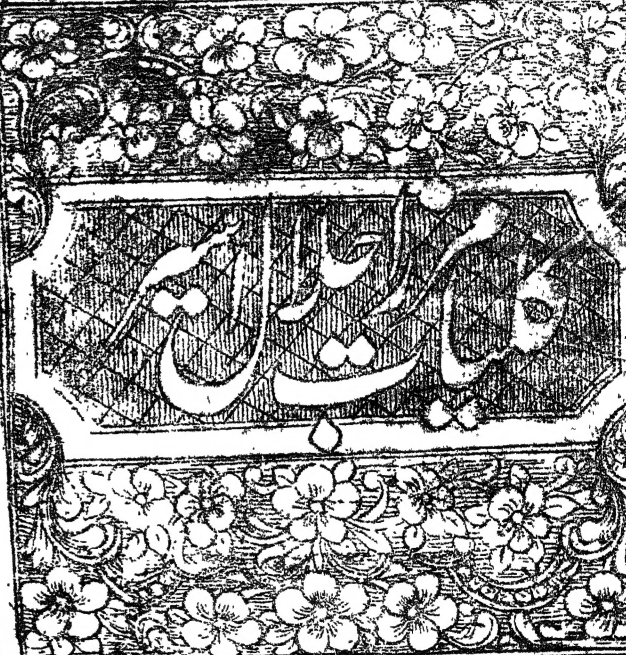 کلیات مرزا جلال اسیر